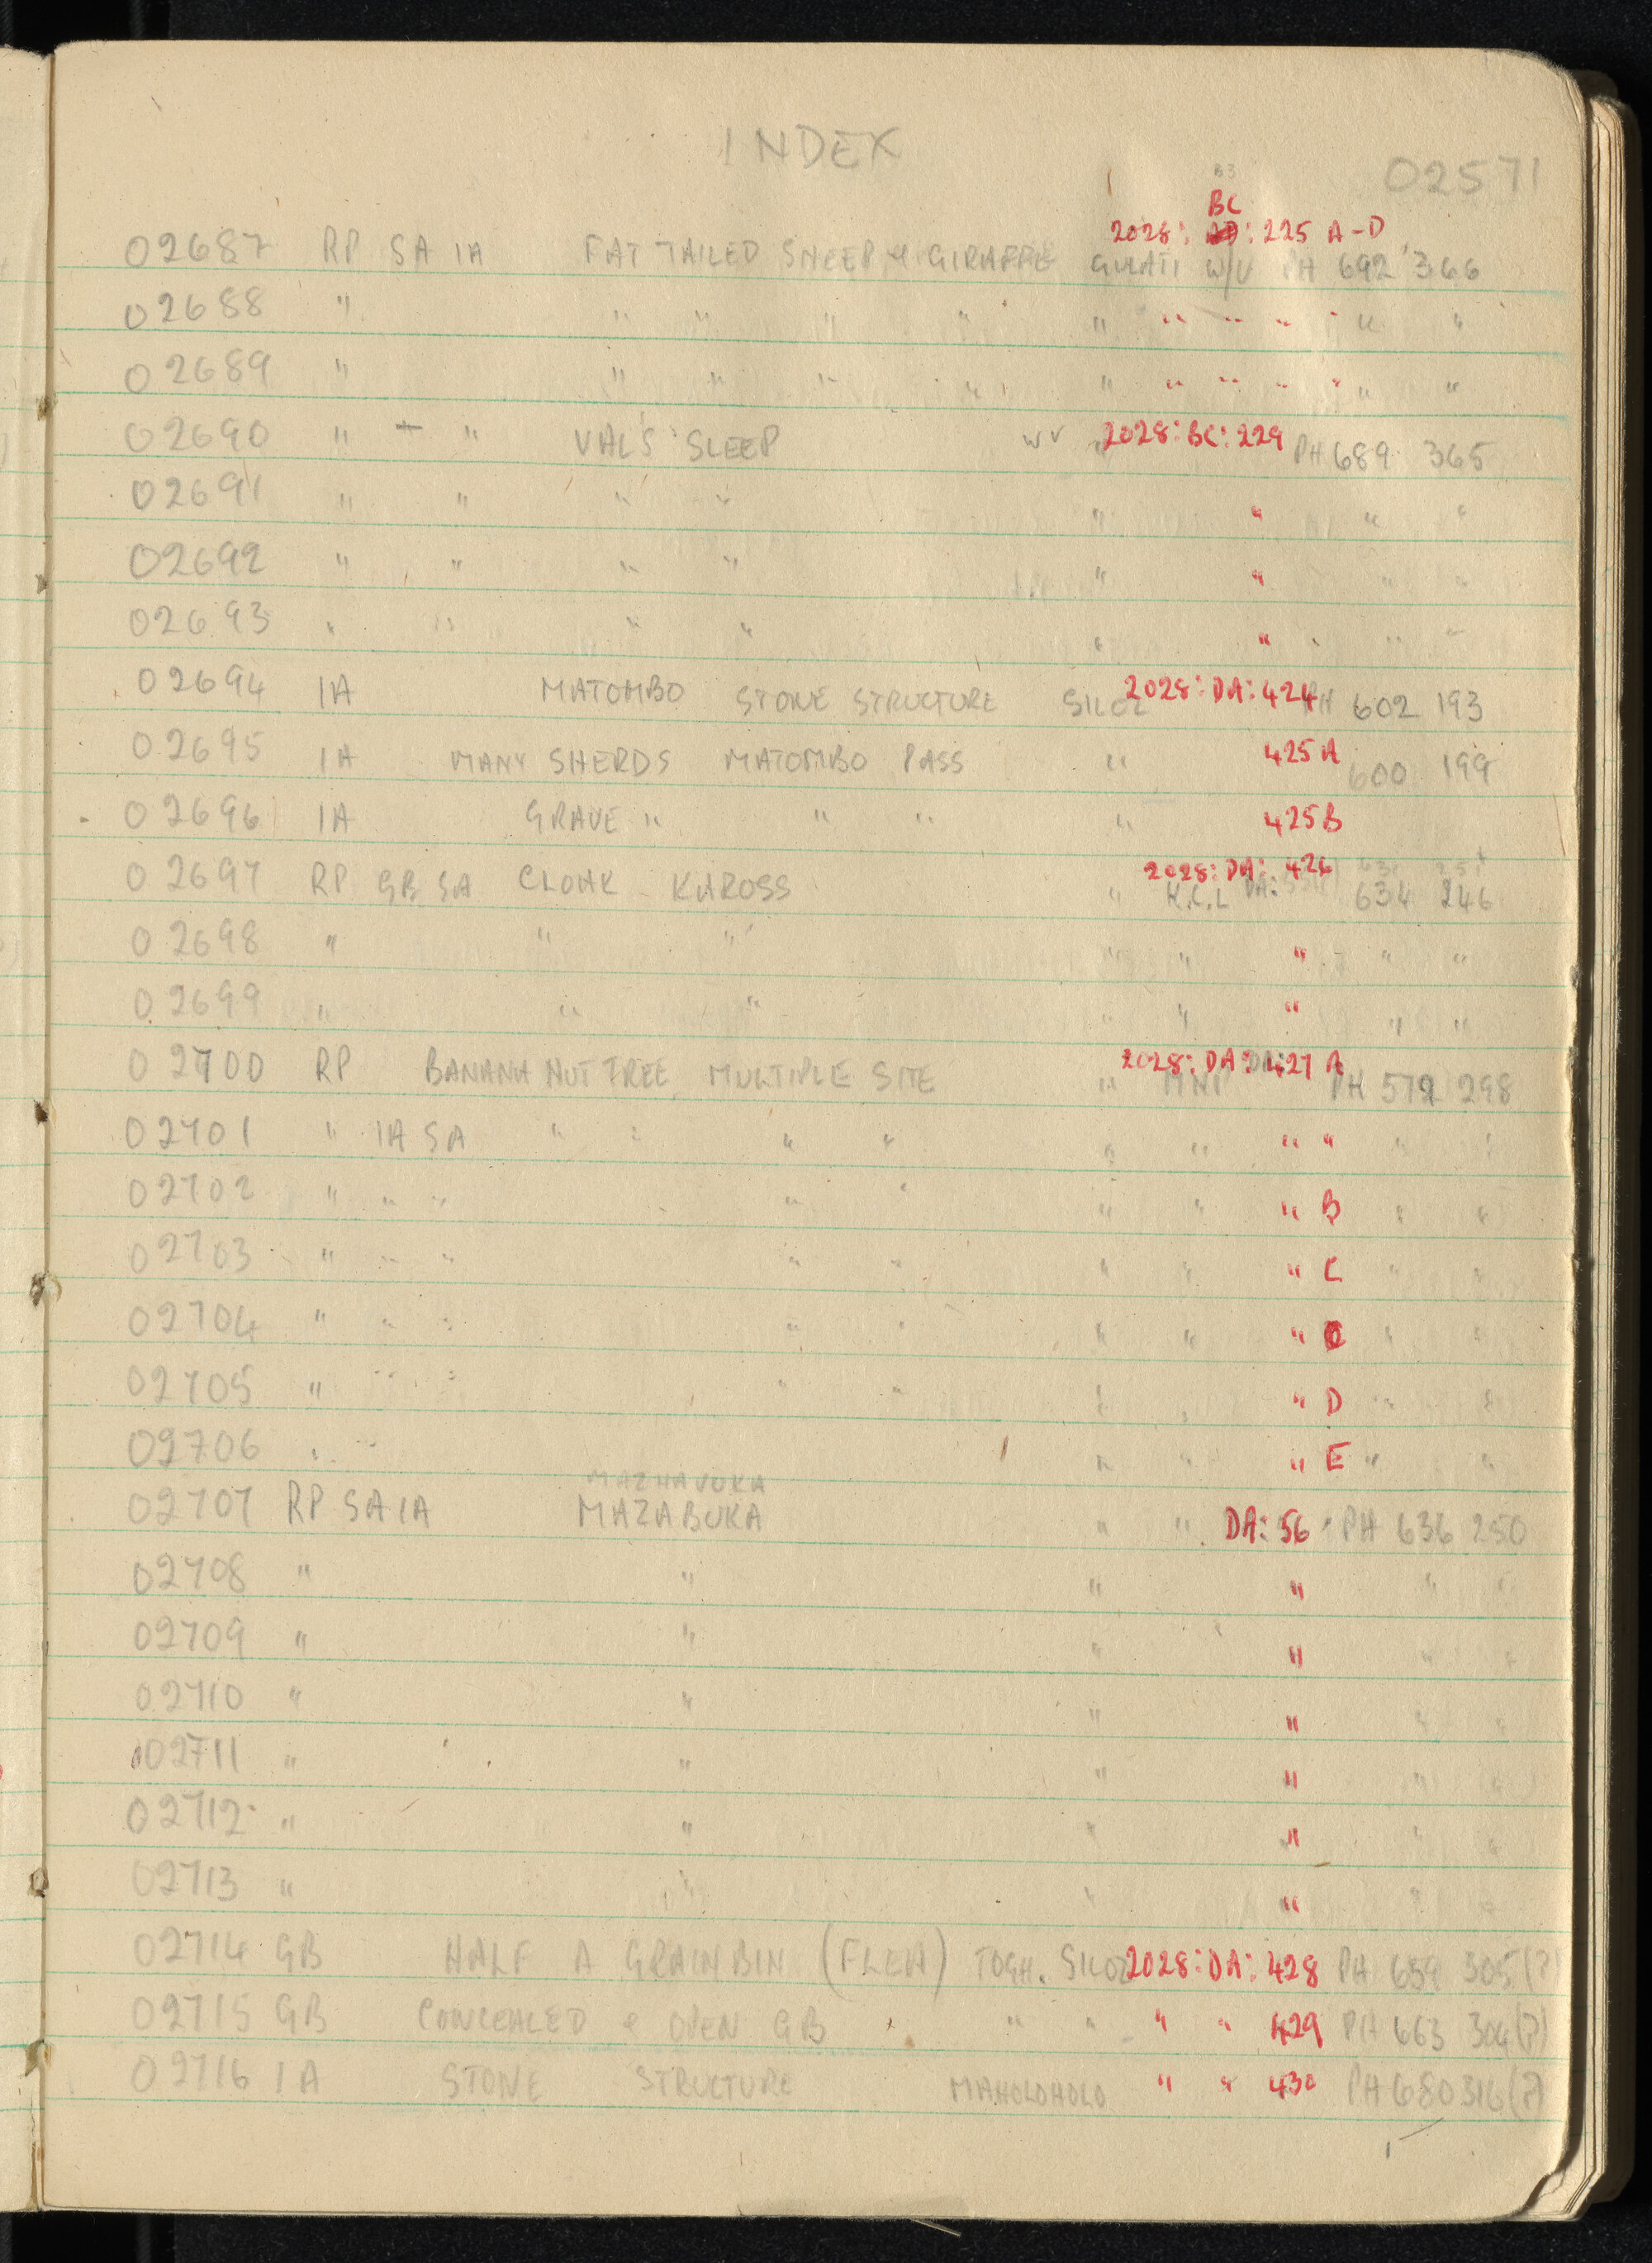 INDEX
02571
B3
BC
2028: : 225 A-D
02687 RP SA IA FAT TAILED SHEEP & GIRAFFE GULATI W/V PH 692 366
02688 " " " " " " " " " " " "
02689 " " " " " " " " " " " "
02690 " + " VAL'S SLEEP WV " 2028:BC:229 PH 689 365
02691 " " " " " " " "
02692 " " " " " " " "
02693 " " " " " " " " "
02694 IA MATOMBO STONE STRUCTURE SILOZ 2028:DA:424 PH 602 193
02695 IA MANY SHERDS MATOMBO PASS " 425A 600 199
02696 IA GRAVE " " " " 425B
2028:DA: 426
02697 RP GB SA CLOAK KAROSS " K.C.L DA: 634 246
02698 " " " " " " " "
02699 " " " " " " " "
02700 RP BANANA NUT TREE, MULTIPLE SITE " MNP 2028:DA:427 A PH 572 298
02701 " IA SA " " " " " " " " " "
02702 " " " " " " " " B " "
02703 " " " " " " " " C " "
02704 " " " " " " " " " "
02705 " " " " " " " " D " "
02706 " " " " " E " "
MAZHAVUKA
02707 RP SA IA MAZABUKA " " DA:56 PH 636 250
02708 " " " " " "
02709 " " " " " "
02710 " " " " " "
02711 " " " " " "
02712 " " " " " "
02713 " " " " " "
02714 GB HALF A GRAINBIN (FLEA) TOGH. SILOZ 2028:DA: 428 PH 659 305(?)
02715 GB CONCEALED & OPEN GB " " " " 429 PH 663 304(?)
02716 IA STONE STRUCTURE MAHOLOHOLO " " 430 PH 680 316(?)